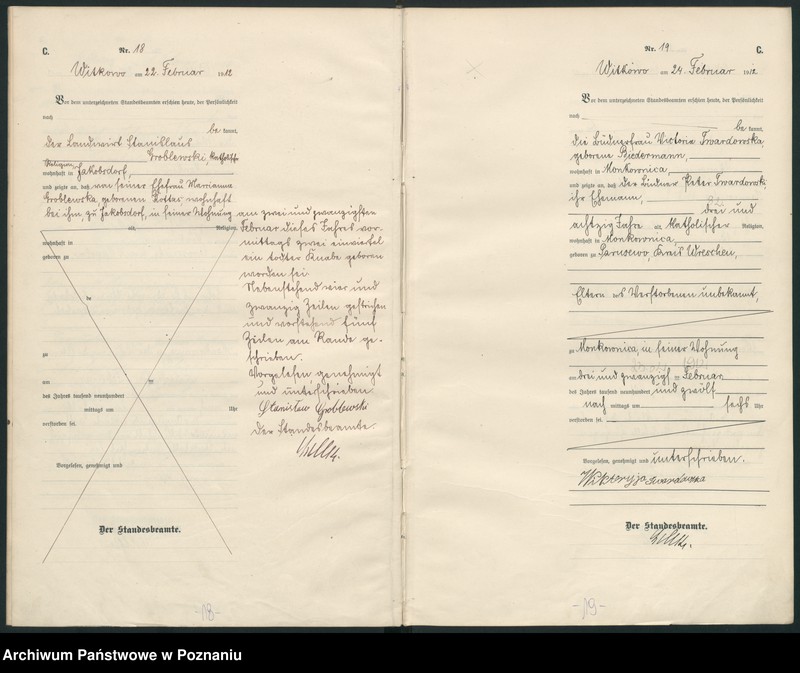 C.
Nr. 18
Witkowo am 22. Februar 1912
Vor dem unterzeichneten Standesbeamten erschien heute, der Persönlichkeit
nach
be kannt,
der Landwirt Stanislaus
Groblewski, katholisch
Religion,
wohnhaft in Jakobsdorf,
und zeigte an, daß von seiner Ehefrau Marianna
Groblewska, geborenen Kottas, wohnhaft
bei ihm, zu Jakobsdorf, in seiner Wohnung
alt, Religion,
wohnhaft in
geboren zu
de
zu
am ten
des Jahres tausend neunhundert
mittags um Uhr
verstorben sei.
Vorgelesen, genehmigt und
Der Standesbeamte.
am zwei und zwanzigsten
Februar dieses Jahres vor-
mittags zwei einviertel
ein todter Knabe geboren
worden sei
Nebenstehend vier und
zwanzig Zeilen gestrichen
und vorstehend fünf
Zeilen am Rande ge-
schrieben.
Vorgelesen genehmigt
und unterschrieben
Stanisław Groblewski
Der Standesbeamte.
-18-
Nr. 19
C.
Witkowo am 24. Februar 1912
Vor dem unterzeichneten Standesbeamten erschien heute, der Persönlichkeit
nach
be kannt,
die Büdnerfrau Victoria Twardowska,
geborene Biedermann,
wohnhaft in Monkownica,
und zeigte an, daß der Büdner Peter Twardowski,
ihr Ehemann,
drei und
achtzig Jahre alt, katholischer Religion,
wohnhaft in Monkownica,
geboren zu Kreis Wreschen,
Eltern des Verstorbenen unbekannt,
zu Monkownica, in seiner Wohnung
am drei und zwanzigsten Februar
des Jahres tausend neunhundert und zwölf
nach mittags um sechs Uhr
verstorben sei.
Vorgelesen, genehmigt und unterschrieben.
Wikteryja Twardowska
Der Standesbeamte.
-19-
Archiwum Państwowe w Poznaniu